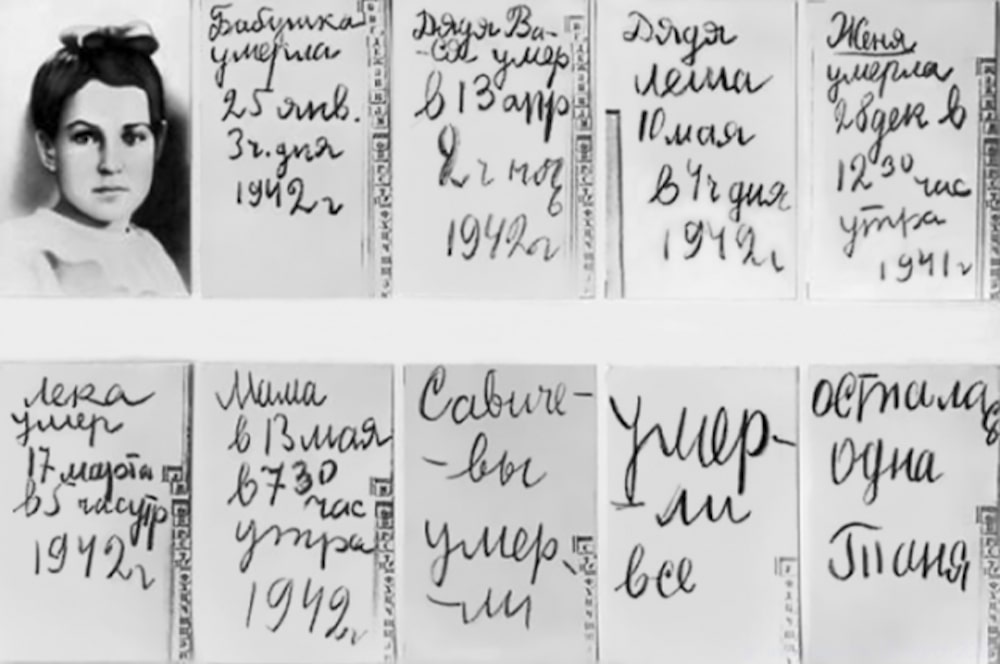 Бабушка
умерла
25 янв.
3ч. дня
1942 г
Дядя Ва-
-ся умер
в 13 апр
2 ч ноч
1942 г
Дядя
Леша
10 мая
в 4ч дня
1942 г
Женя
умерла
28 дек в
12 30 час
утра
1941 г
Лека
умер
17 марта
в 5 час утр
1942 г
Мама
в 13 мая
в 7 30
час
утра
1942 г
Савиче-
-вы
умер
-ли
Умер-
-ли
все
Осталась
одна
Таня